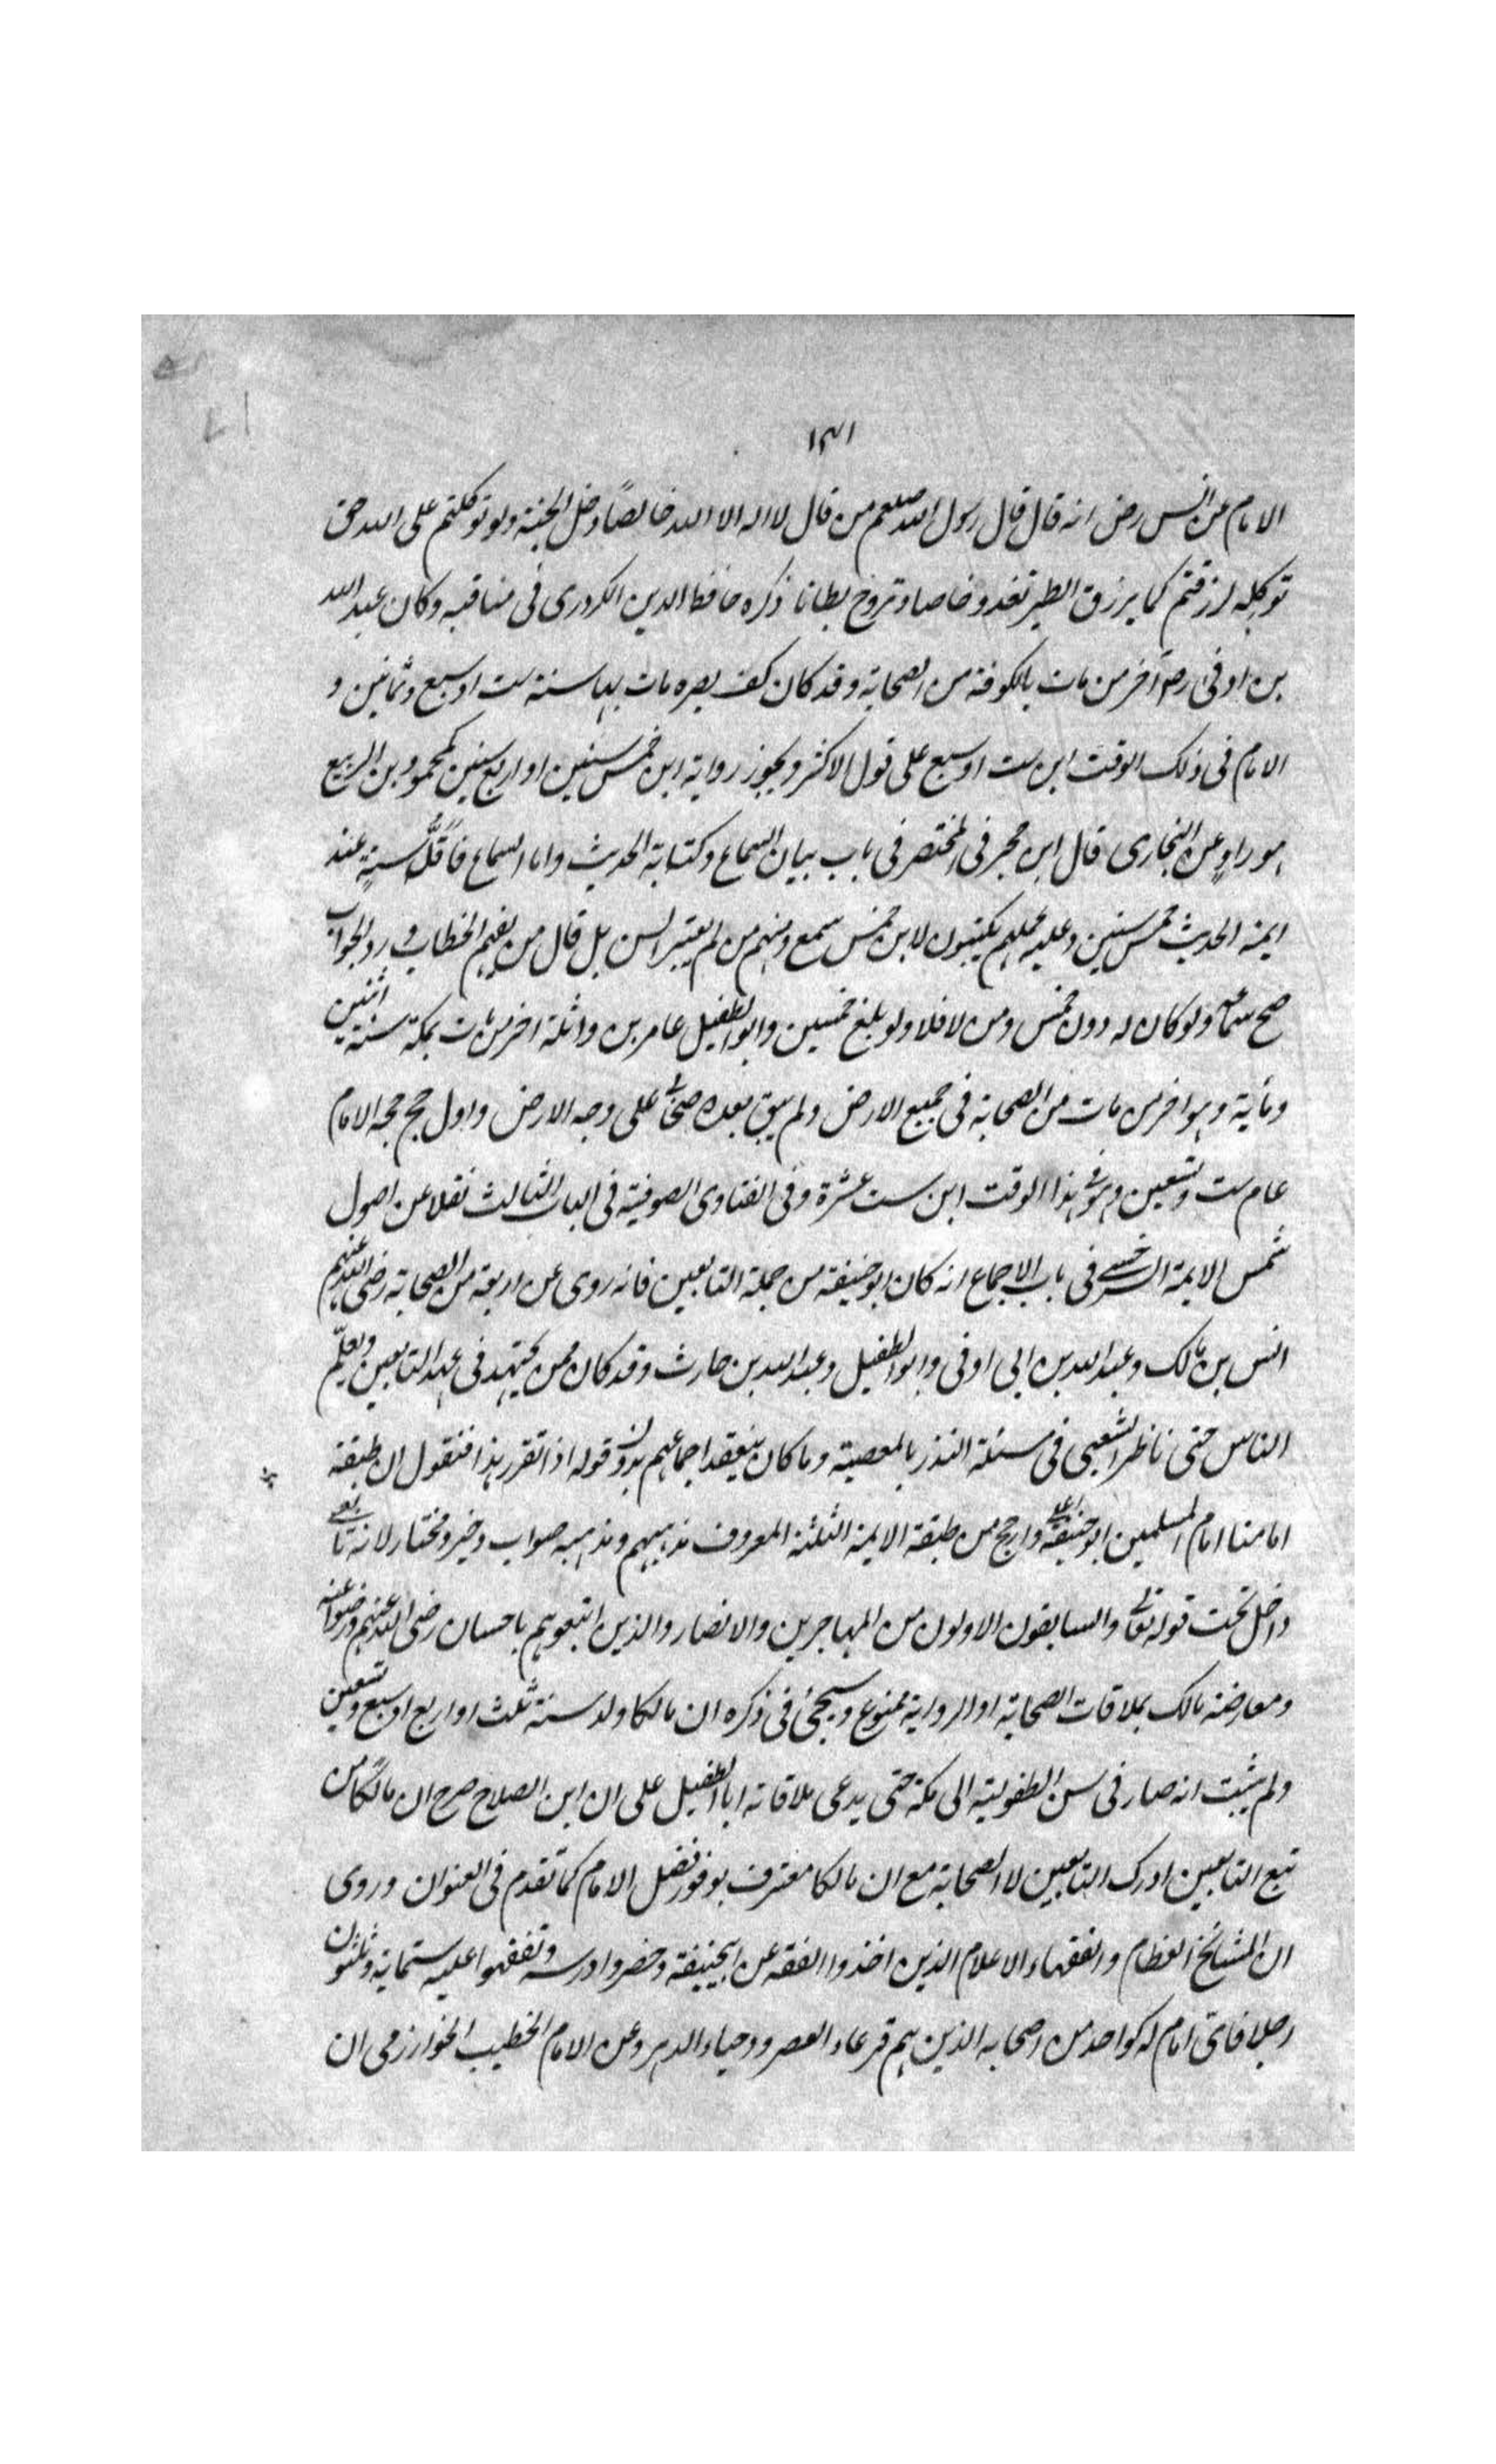 ١٣١
الامام عن انس رض انه قال قال رسول الله صلعم من قال لا اله الا الله خالصًا دخل الجنة ولو توكلتم على الله حق
توكله لرزقتم كما يرزق الطير تغدو خماصا وتروح بطانا ذكره حافظ الدين الكردرى فى مناقبه وكان عبد الله
بن اوفى رض آخر من مات بالكوفة من الصحابة وقد كان كف بصره مات بها سنة ست او سبع وثمانين و
الامام فى ذلك الوقت ابن ست او سبع على قول الاكثر ويجوز رواية ابن خمس سنين او اربع سنين كمحمود بن الربيع
هو راوٍ عن البخارى قال ابن حجر فى المختصر فى باب بيان السماع وكتابة الحديث واما السماع فاقلّ سنةٍ عند
ايمة الحديث خمس سنين وعليه عملهم يكتبون لابن خمس سمع ومنهم من لم يعتبر السن بل قال من يفهم الخطاب و رد الجواب
صح سماعه ولو كان له دون خمس ومن لا فلا ولو بلغ خمسين وابو الطفيل عامر بن واثلة اخر من مات بمكة سنة اثنين
ومأية وهو اخر من مات من الصحابة فى جميع الارض ولم يبق بعده صحابى على وجه الارض واول حج حجه الامام
عام ست وتسعين وهو فى هذا الوقت ابن ست عشرة وفى الفتاوى الصوفية فى الباب الثالث نقلا عن اصول
شمس الايمة السرخسى فى باب الاجماع انه كان ابو حنيفة من جملة التابعين فانه روى عن اربعة من الصحابة رضى الله عنهم
انس بن مالك وعبد الله بن ابى اوفى وابو الطفيل وعبد الله بن حارث وقد كان ممن يجتهد فى عهد التابعين ويعلّم
الناس حتى ناظر الشعبى فى مسئلة النذر بالمعصية وما كان ينعقد اجماعهم بدون قوله اذا تقرر هذا فنقول ان طبقة
امامنا امام المسلمين ابو حنيفة اعلى وارجح من طبقة الايمة الثلثة المعروف مذهبهم ومذهبه صواب وخير ومختار لانه تابعى
داخل تحت قوله تعالى والسابقون الاولون من المهاجرين والانصار والذين اتبعوهم باحسان رضى الله عنهم ورضوا عنه
ومعارضة مالك بملاقات الصحابة او الرواية ممنوع وسيجئ فى ذكره ان مالكا ولد سنة ثلث او اربع او سبع وتسعين
ولم يثبت انه صار فى سن الطفولية الى مكة حتى يدعى ملاقاته ابا الطفيل على ان ابن الصلاح صرح ان مالكًا من
تبع التابعين ادرك التابعين لا الصحابة مع ان مالكا معترف بوفور فضل الامام كما تقدم فى العنوان وروى
ان المشائخ العظام والفقهاء الاعلام الذين اخذوا الفقه عن ابيحنيفة وحضروا درسه وتفقهوا عليه ستماية وثلثون
رجلا فاتى امام له كواحد من اصحابه الذين هم قرعاء العصر و وحباء الدهر وعن الامام الخطيب الخوارزمى ان